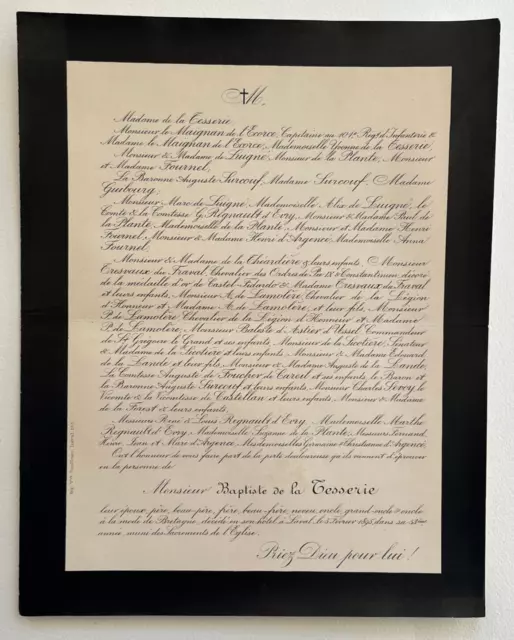 ✝M.
Madame de la Tesserie
Monsieur le Maignan de l'Ecorce, Capitaine au 101e Regt d'Infanterie &
Madame le Maignan de l'Ecorce, Mademoiselle Yvonne de la Tesserie,
Monsieur & Madame de Luigné, Monsieur de la Plante, Monsieur
et Madame Fournel,
La Baronne Auguste Surcouf, Madame Surcouf, Madame
Guibourg,
Monsieur Marc de Luigné, Mademoiselle Alix de Luigné, le
Comte & la Comtesse G. Regnault d'Evry, Monsieur & Madame Paul de
la Plante, Mademoiselle de la Plante, Monsieur et Madame Henri
Fournel, Monsieur & Madame Henri d'Argence, Mademoiselle Anna
Fournel,
Monsieur & Madame de la & leurs enfants, Monsieur
Cresvaux du Fraval, Chevalier des Ordres de Pie IX & Constantinien, décoré
de la médaille d'or de Castel-Fidardo & Madame Cresvaux du Fraval
et leurs enfants, Monsieur A. de Lamolère, Chevalier de la Légion
d'Honneur et Madame A. de Lamolère et leur fils, Monsieur
P. de Lamolère, Chevalier de la Légion d'Honneur et Madame
P. de Lamolère, Monsieur Baliste d'Astier d'Ussel, Commandeur
de St Grégoire le Grand et ses enfants, Monsieur de la Sicotière, Sénateur
& Madame de la Sicotière et leurs enfants, Monsieur & Madame Edouard
de la Lande et leur fille, Monsieur & Madame Auguste de la Lande,
La Comtesse Auguste de de Careil et ses enfants, le Baron et
la Baronne Auguste Surcouf et leurs enfants, Monsieur Charles Leroy, le
Vicomte & la Vicomtesse de Castellan et leurs enfants, Monsieur & Madame
de la Forest & leurs enfants,
Messieurs René et Louis Regnault d'Evry, Mademoiselle Marthe
Regnault d'Evry, Mademoiselle Suzanne de la Plante, Messieurs Fernand,
Henri, Jean et Marc d'Argence, Mesdemoiselles Germaine & Christiane d'Argence,
Ont l'honneur de vous faire part de la perte douloureuse qu'ils viennent d'éprouver
en la personne de
Monsieur Baptiste de la Tesserie
leur époux, père, beau-père, frère, beau-frère, neveu, oncle, grand-oncle & oncle
à la mode de Bretagne, décédé en son hôtel à Laval, le 5 Février 1895, dans sa
année, muni des Sacrements de l'Eglise.
Priez Dieu pour lui!